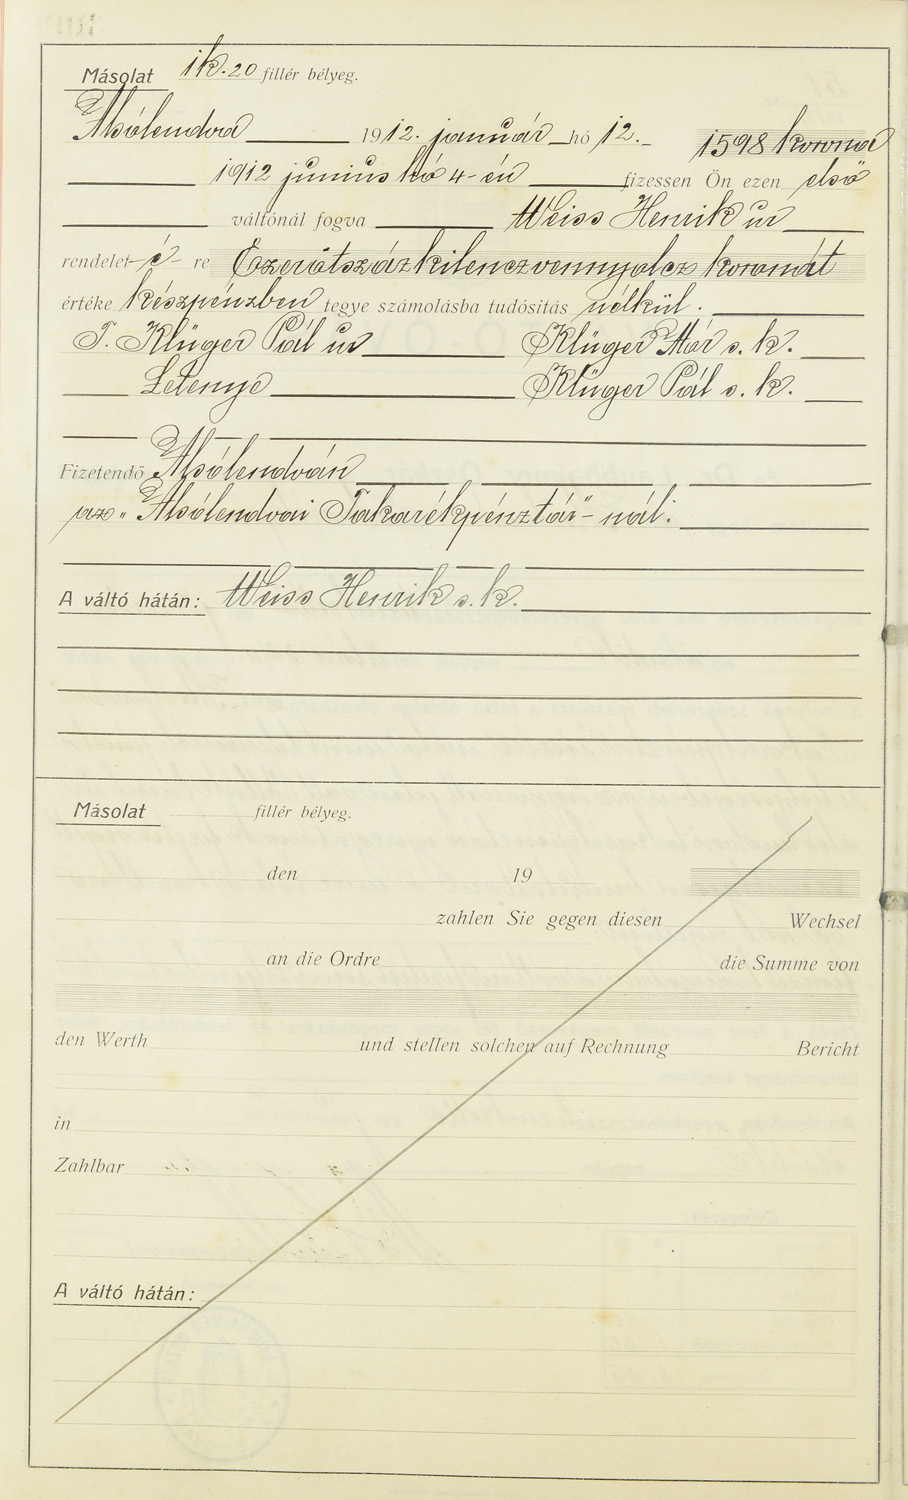 Másolat 1k.20 fillér bélyeg.
Alsólendva 1912. január hó 12. 1598 korona
1912 junius hó 4-én fizessen Ön ezen első
váltónál fogva Weiss Henrik úr
rendelet-é-re Ezerötszázkilenczvennyolcz koronát
értéke készpénzben tegye számolásba tudósítás nélkül.
T. Klüger Pál úr Klüger Mór s. k.
Letenye Klüger Pál s. k.
Fizetendő Alsólendván
az „Alsólendvai Takarékpénztár"-nál.
A váltó hátán: Weiss Henrik s. k.
Másolat fillér bélyeg.
den 19
zahlen Sie gegen diesen Wechsel
an die Ordre die Summe von
den Werth und stellen solchen auf Rechnung Bericht
in
Zahlbar
A váltó hátán: